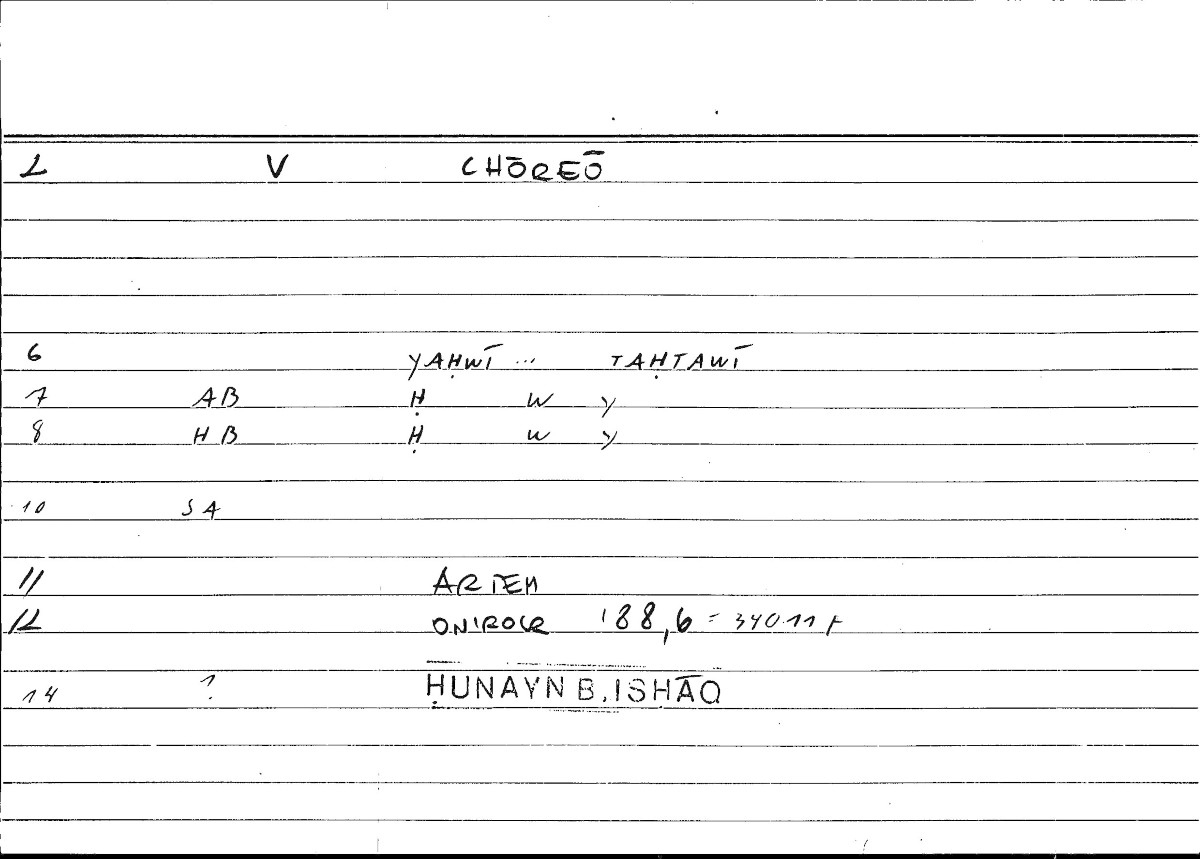 L V CHŌREŌ
6 YAḤWĪ ... TAḤTAWĪ
7 AB Ḥ W Y
8 HB Ḥ W Y
10 SA
11 ARTEM
12 ONIROCR 188,6 = 340 11 F
14 ? ḤUNAYN B. ISḤĀQ